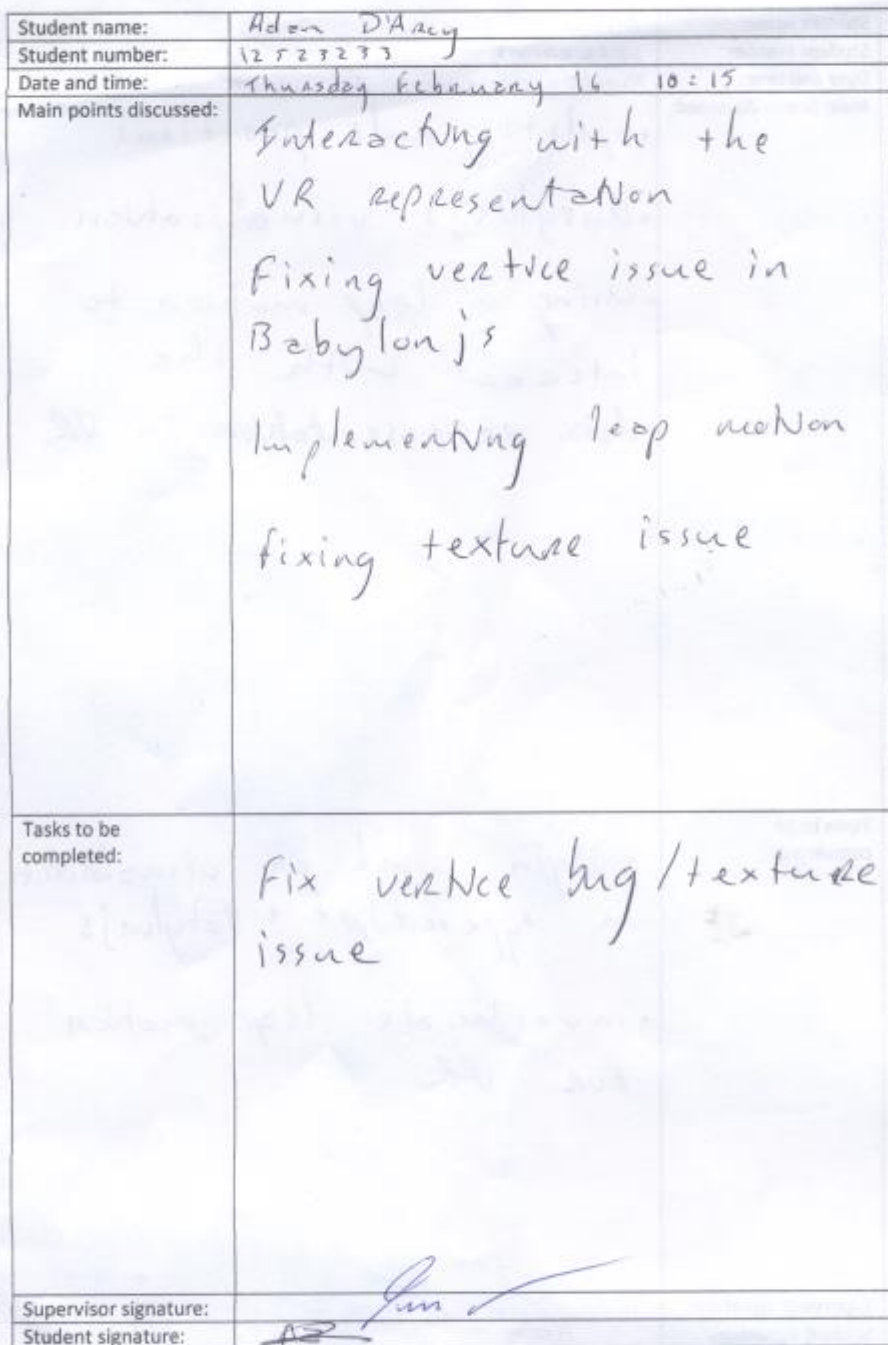 Student name: Adam D'Arcy
Student number: 12523233
Date and time: Thursday February 16 10:15
Main points discussed:
Interacting with the
VR representation
Fixing vertice issue in
Babylonjs
Implementing leap motion
fixing texture issue
Tasks to be
completed:
Fix vertice bug/texture
issue
Supervisor signature:
Student signature: